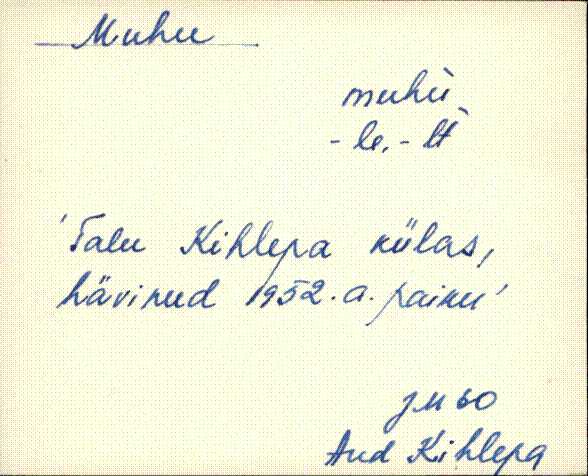 Muhu
muhù
-le, -lt̀
'Talu Kihlepa külas,
hävinud 1952. a. paiku'
JM 60
Aud Kihlepa